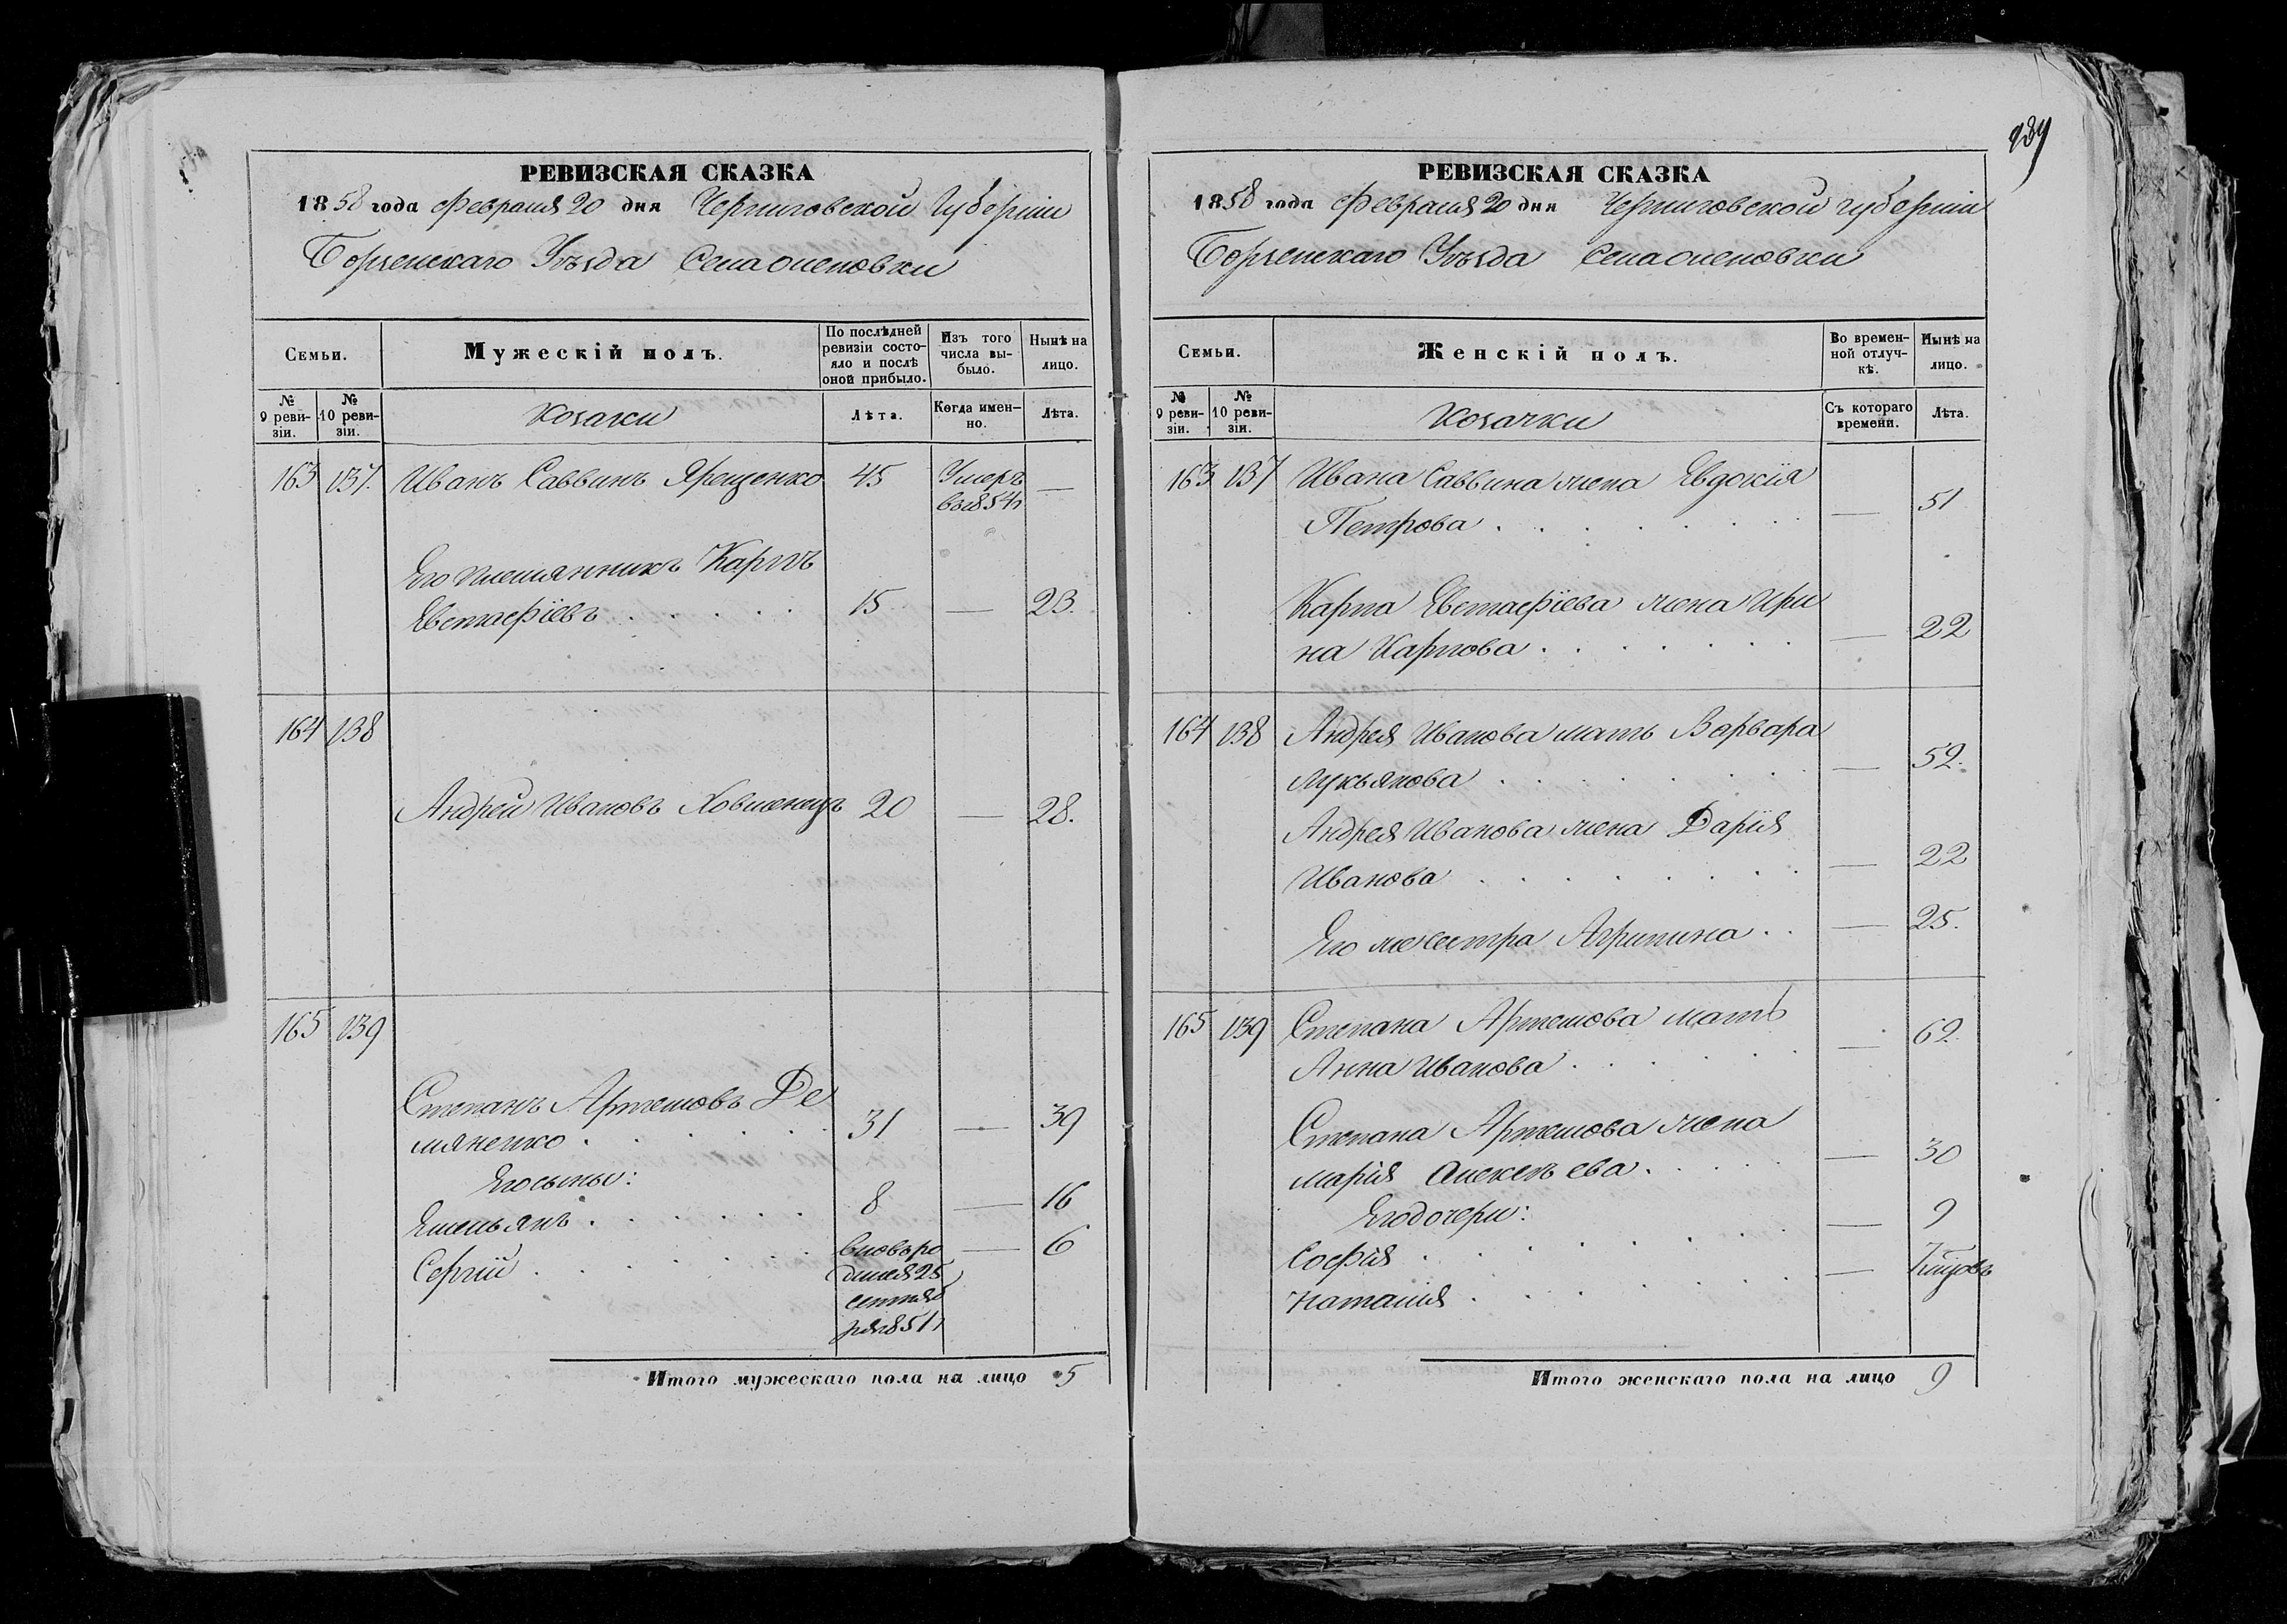 РЕВИЗСКАЯ СКАЗКА
1858 года Февраля 20 дня Черниговской Губерніи
Борзенскаго Уѣзда Села Оленовки
Семьи.
Мужескій полъ.
По послѣдней ревизіи состояло и послѣ оной прибыло.
Изъ того числа выбыло.
Нынѣ на лицо.
№ 9 ревизіи.
№ 10 ревизіи.
Козаки
Лѣта.
Когда именно.
Лѣта.
163 137. Иванъ Саввинъ Ярещенко 45 Умеръ —
въ 1854 г
Его племянникъ Карпъ
Евстафіевъ . . . . . 15 — 23.
164 138
Андрей Ивановъ 20 — 28.
165 139
Степанъ Артемовъ Де
мяненко . . . . . . 31 — 39
Его сыны:
Емельянъ . . . . . . 8 — 16
Сергій . . . . . . вновь ро — 6
дился 25
сентяб
ря 851 г
Итого мужескаго пола на лицо 5
239
РЕВИЗСКАЯ СКАЗКА
1858 года Февраля 20 дня Черниговской губерніи
Борзенскаго Уѣзда Села Оленовки
Семьи.
Женскій полъ.
Во временной отлучкѣ.
Нынѣ на лицо.
№ 9 ревизіи.
№ 10 ревизіи.
Козачки
Съ котораго времени.
Лѣта.
163 137 Ивана Саввина жена Евдокія
Петрова . . . . . . . . — 51
Карпа Евстафіева жена Ири
на Карпова . . . . . . . — 22
164 138 Андрея Иванова мать Варвара
Лукьянова . . . . . . . — 52.
Андрея Иванова жена Дарія
Иванова . . . . . . . . — 22
Его же сестра Агрипина . . — 25.
165 139 Степана Артемова мать
Анна Иванова . . . . . . — 62
Степана Артемова жена
Марія Алексѣева . . . . — 30
Его дочери:
Софія . . . . . . . . — 9
Наталія . . . . . . . —
Итого женскаго пола на лицо 9